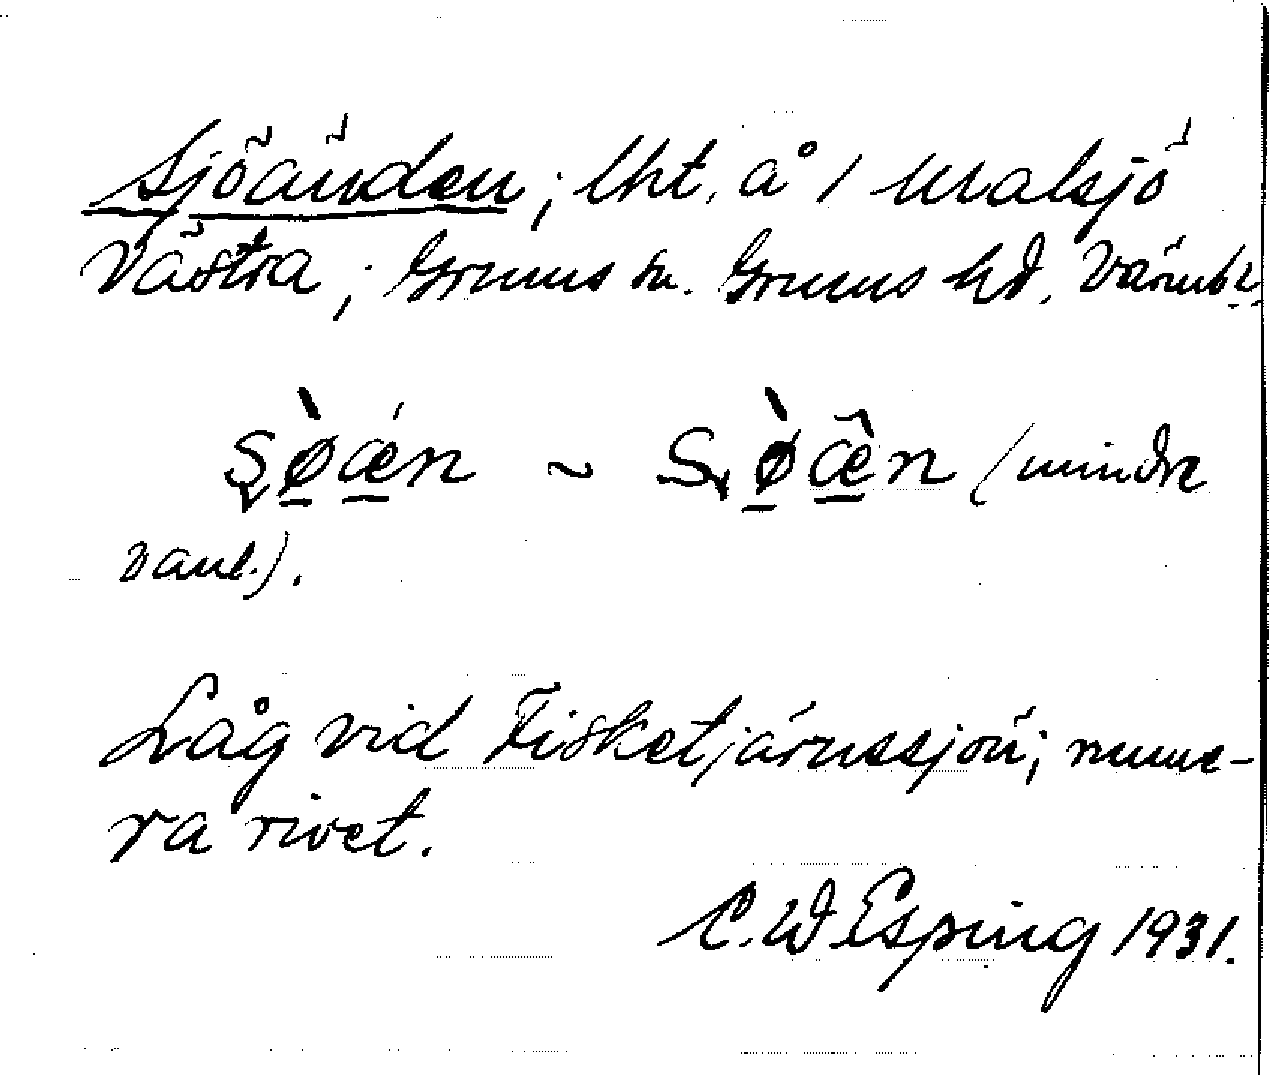 Sjöänden; lht. å 1 Ulvalsjö
Västra; Grums sn. Grums hd. Värmbl.
Sø̀æ´n ~ Sø̀æ̂n (mindre
vanl.).
Låg vid Fisketjärnssjön; nume-
ra rivet.
C.W. Esping 1931.